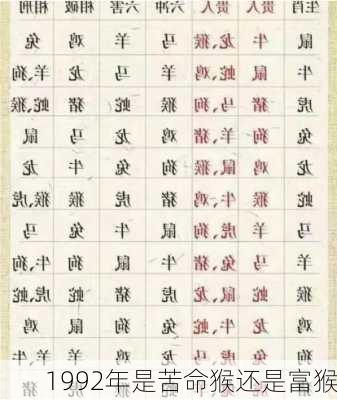 生肖 贵人 贵人 六冲 六害 相破 相刑
鼠 牛 龙、猴 马 羊 鸡 兔
牛 鼠 蛇、鸡 羊 马 龙 羊、狗
虎 猪 马、狗 猴 蛇 猪 蛇、猴
兔 狗 羊、猪 鸡 龙 马 鼠
龙 鸡 鼠、猴 狗 兔 牛 龙
蛇 猴 牛、鸡 猪 虎 猴 虎、猴
马 羊 虎、狗 鼠 牛 兔 马
羊 马 兔、猪 牛 鼠 狗 牛、狗
猴 蛇 鼠、龙 虎 猪 蛇 虎、蛇
鸡 龙 牛、蛇 兔 狗 鼠 鸡
狗 兔 虎、马 龙 鸡 羊 牛、羊
1992年是苦命猴还是富猴